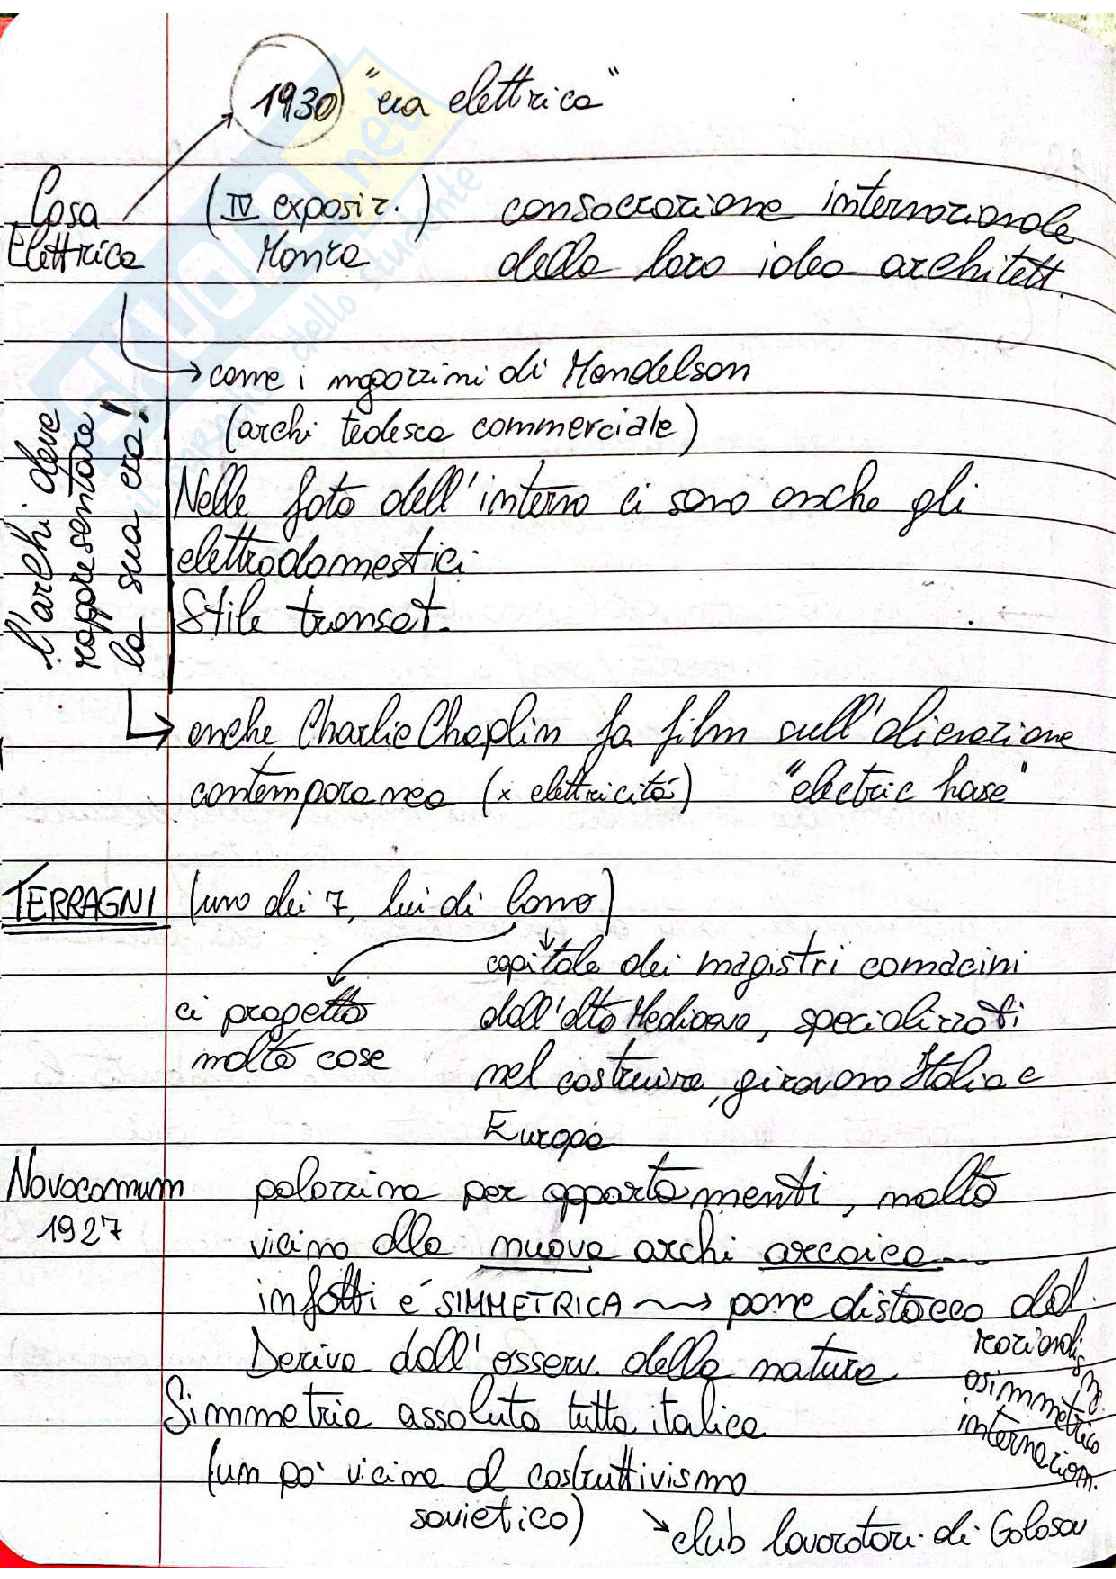 1930 "era elettrica"
Casa Elettrica
(IV exposiz.) Monza
consacrazione internazionale
della loro idea architett.
come i magazzini di Mendelson
(archi tedesca commerciale)
l'archi deve
rappresentare
la sua era!
Nelle foto dell'interno ci sono anche gli
elettrodomestici
Stile transat.
anche Charlie Chaplin fa film sull'alienazione
contemporanea (x elettricità) "electric hase"
TERRAGNI (uno dei 7, lui di Como)
capitale dei magistri comacini
dall'alto Medioevo, specializzati
nel costruire, giravano Italia e
Europa
ci progetta
molte cose
Novocomum
1927
palazzina per appartamenti, molto
vicina alla nuova archi arcaica
infatti è SIMMETRICA → pone distacco dal
razionalismo
asimmetrico
internazion.
Deriva dall'osserv. della natura
Simmetria assoluta tutta italica
(un po' vicina al costruttivismo
sovietico) → club lavoratori di Golosov
skuola.net
dello studente